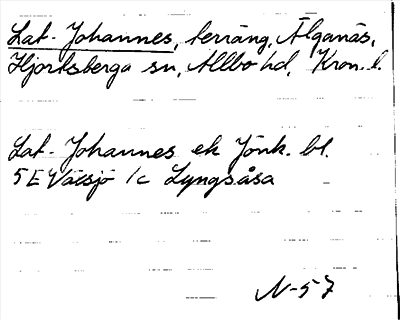 Lat-Johannes, terräng, Älganäs,
Hjortsberga sn, Allbo hd, Kron. l.
Lat-Johannes ek Jönk. bl.
5 E Växjö 1c Lyngsåsa
N-57